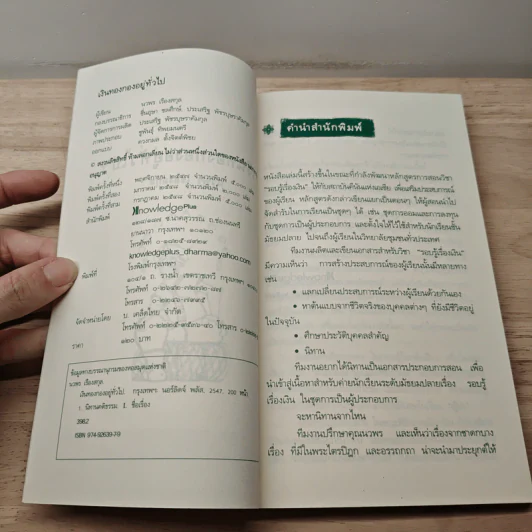 เงินทองกองอยู่ทั่วไป
ผู้เขียน นวพร เรืองสกุล
กองบรรณาธิการ
ผู้จัดการการผลิต ประเสริฐ พัชรบุษราคัมกุล
ภาพประกอบ ชูพันธุ์ ทิพยมนตรี
ออกแบบ
© สงวนลิขสิทธิ์ ห้ามลอกเลียน ไม่ว่าส่วนหนึ่งส่วนใดของหนังสือ
อนุญาต
พิมพ์ครั้งที่หนึ่ง พฤศจิกายน ๒๕๔๗ จำนวนพิมพ์ ๕,๐๐๐ เล่ม
พิมพ์ครั้งที่สอง มกราคม ๒๕๔๘ จำนวนพิมพ์ ๒,๐๐๐ เล่ม
พิมพ์ครั้งที่สาม กรกฎาคม จำนวนพิมพ์
สำนักพิมพ์ Knowledge Plus
ซ.นาคสุวรรณ ถ.ช่องนนทรี
ยานนาวา กรุงเทพฯ
โทรศัพท์
knowledgeplus_dharma@yahoo.com
พิมพ์ที่ โรงพิมพ์กรุงเทพฯ
ถ. รางน้ำ เขตราชเทวี กรุงเทพฯ
โทรศัพท์
โทรสาร
จัดจำหน่ายโดย บ. เคล็ดไทย จำกัด
โทรศัพท์ โทรสาร
ราคา ๑๒๐ บาท
ข้อมูลทางบรรณานุกรมของหอสมุดแห่งชาติ
นวพร เรืองสกุล
เงินทองกองอยู่ทั่วไป. กรุงเทพฯ: พลัส, 2547. 208 หน้า
1. นิทานคติธรรม. I. ชื่อเรื่อง
ISBN
คำนำสำนักพิมพ์
หนังสือเล่มนี้สร้างขึ้นในขณะที่กำลังพัฒนาหลักสูตรการสอนวิชา
"รอบรู้เรื่องเงิน" ให้กับสถาบันคีนันแห่งเอเซีย เพื่อเสริมประสบการณ์
ของผู้เรียน หลักสูตรดังกล่าวเขียนแยกเป็นตอนๆ ให้ผู้สอนนำไป
จัดสำหรับในการเรียนเป็นชุดๆ ได้ เช่น ชุดการออมและการลงทุน
กับชุดการเป็นผู้ประกอบการ และตั้งใจให้ไว้ใช้สำหรับนักเรียนชั้น
มัธยมปลาย ไปจนถึงผู้เรียนในวิทยาลัยชุมชนทั่วประเทศ
ทีมงานผลิตและเขียนเอกสารสำหรับวิชา "รอบรู้เรื่องเงิน"
มีความเห็นว่า การสร้างประสบการณ์ของผู้เรียนนั้นมีหลายทาง
เช่น
• แลกเปลี่ยนประสบการณ์ระหว่างผู้เรียนด้วยกันเอง
• หาต้นแบบจากชีวิตจริงของบุคคลต่างๆ ที่ยังมีชีวิตอยู่
ในปัจจุบัน
• ศึกษาประวัติบุคคลสำคัญ
• นิทาน
ทีมงานอยากได้นิทานเป็นเอกสารประกอบการสอน เพื่อ
นำเข้าสู่เนื้อหาสำหรับค่ายนักเรียนระดับมัธยมปลายเรื่อง รอบรู้
เรื่องเงิน ในชุดการเป็นผู้ประกอบการ
จะหานิทานจากไหน
ทีมงานปรึกษาคุณนวพร และเห็นว่าเรื่องจากชาดกบาง
เรื่อง ที่มีในพระไตรปิฎก และอรรถกถา น่าจะนำมาประยุกต์ให้